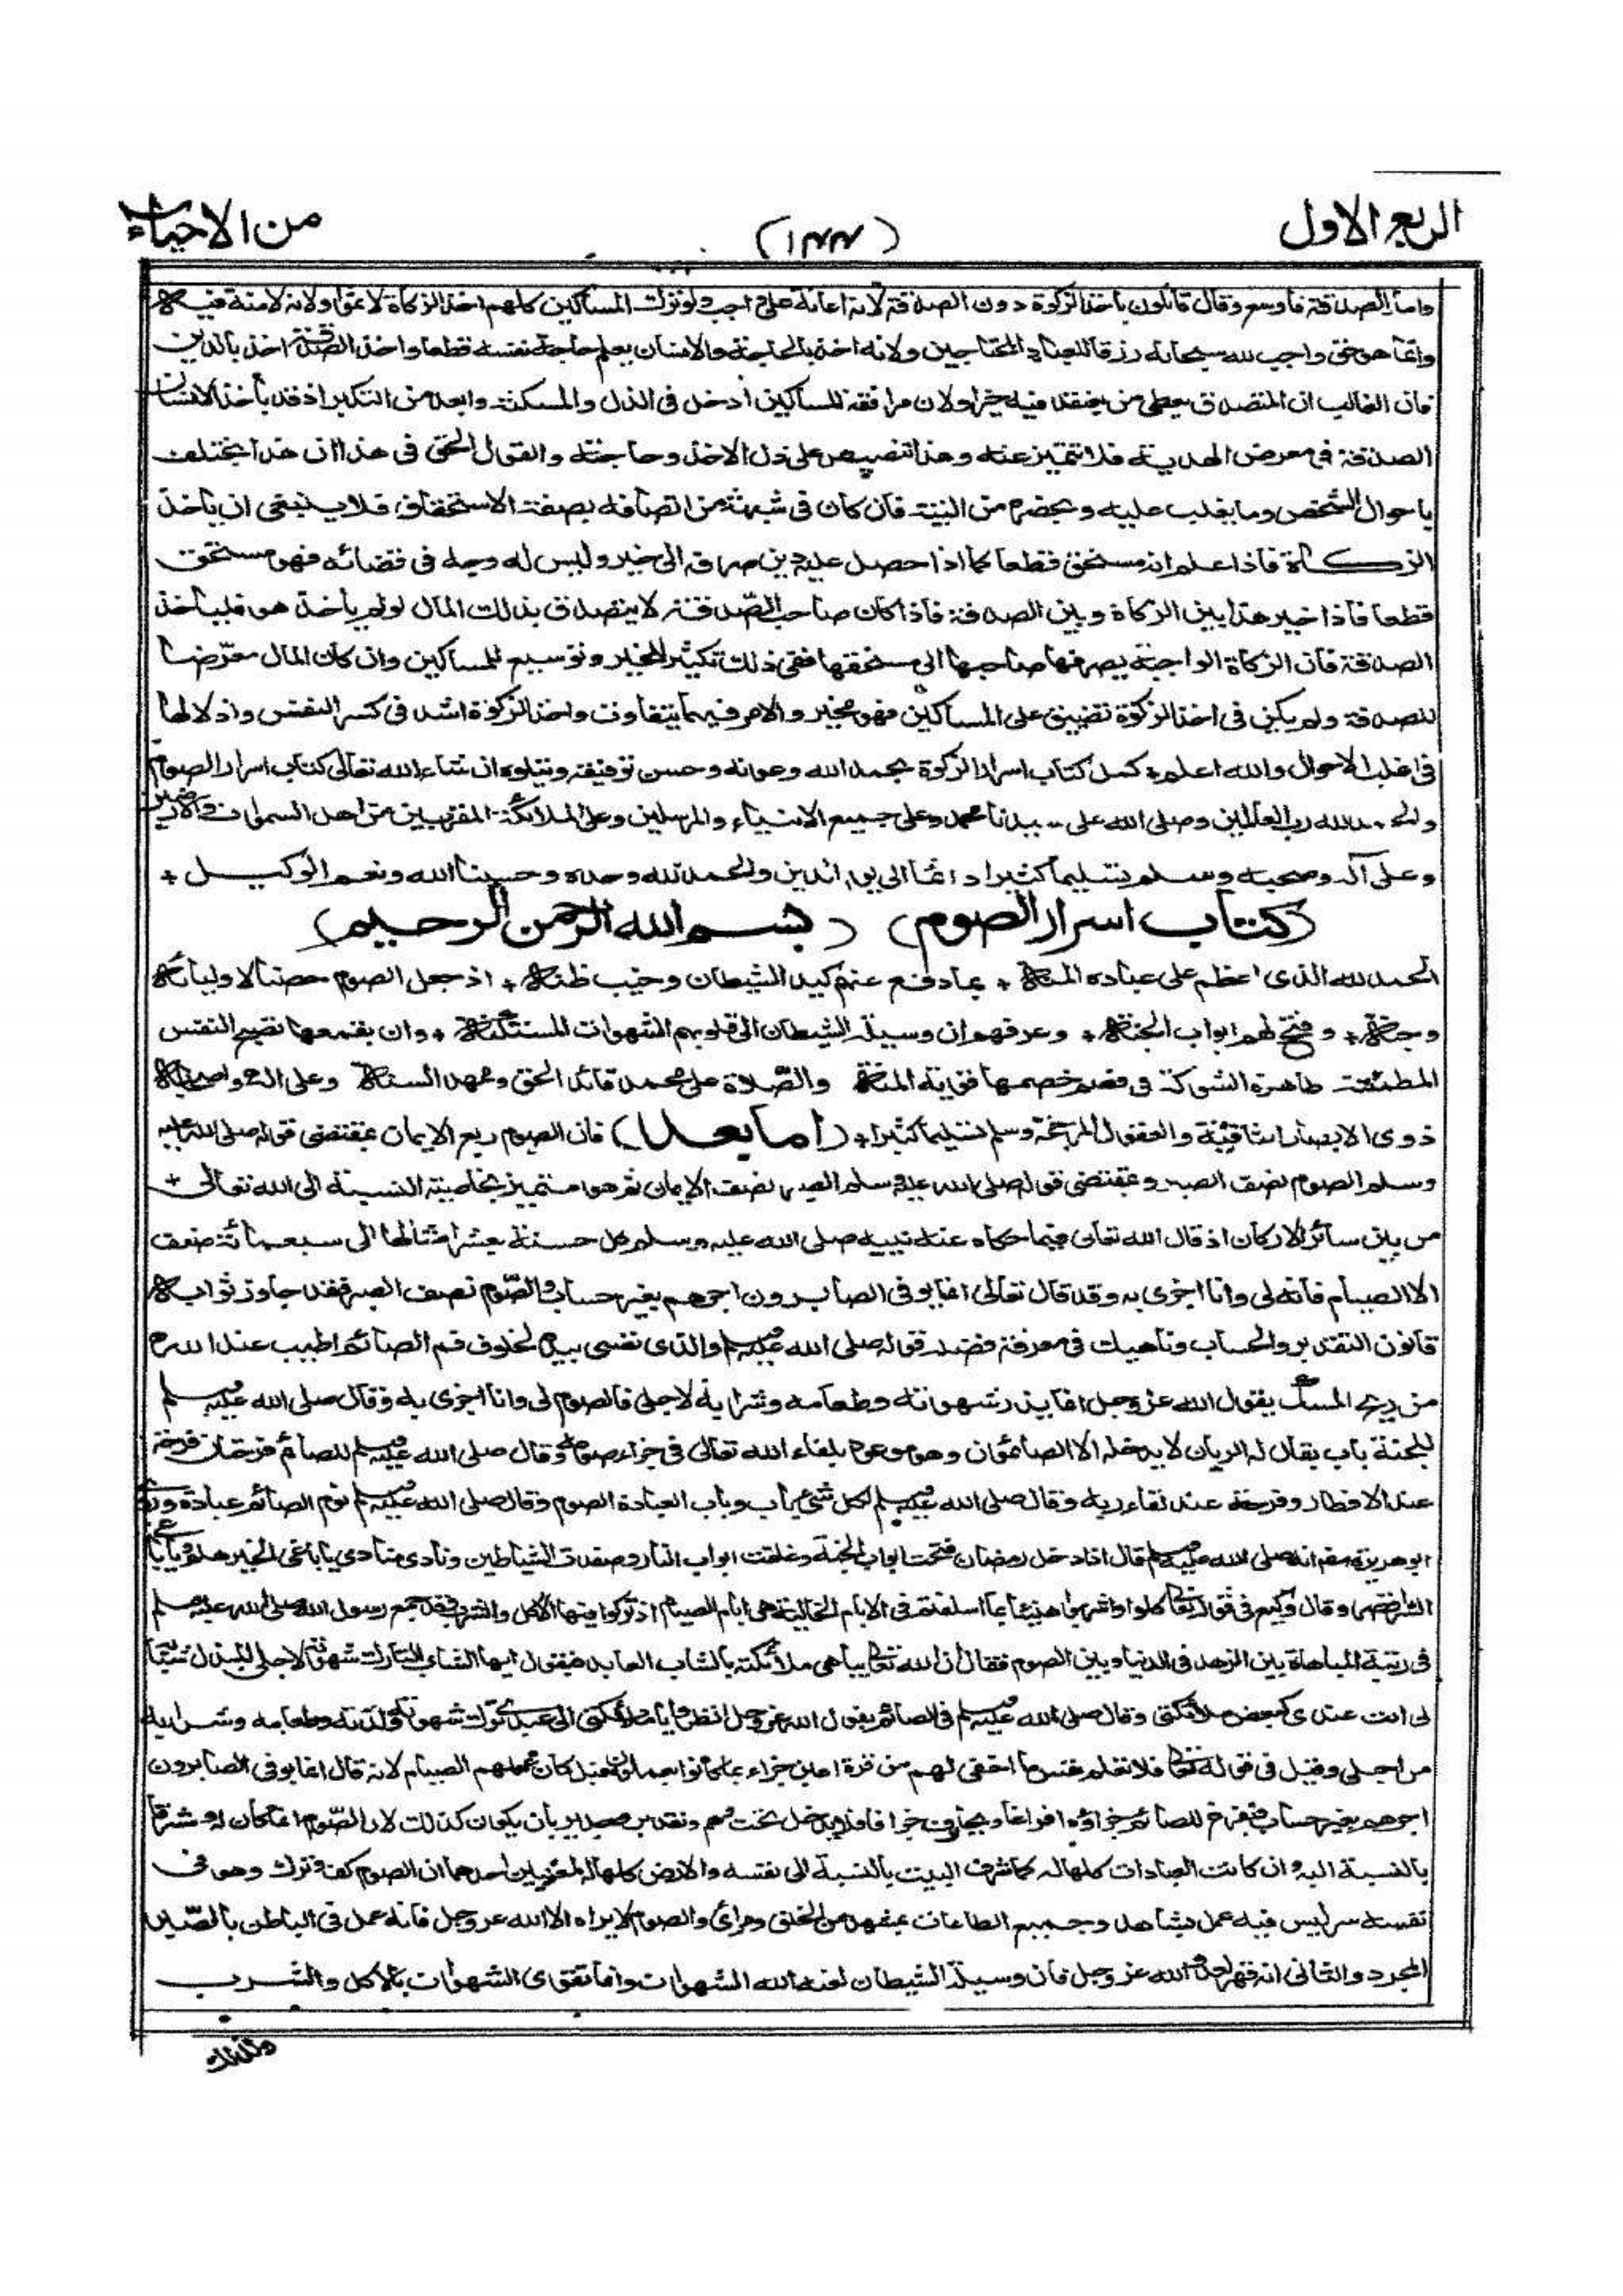 الربع الاول
(١٤٤)
من الاحياء
واما الصدقة فاوسع وقال قائلون ياخذ الزكوة دون الصدقة لانه اعانة على واجب ولو ترك المساكين كلهم اخذ الزكاة لاثموا ولانه لا منة فيه
وانما هو حق واجب لله سبحانه رزقا لعباده المحتاجين ولانه اخذ بالحاجة والانسان يعلم حاجة نفسه قطعا واخذ الصدقة اخذ بالدين
فان الغالب ان المتصدق يعطى من يعتقد فيه خيرا ولان مرافقة المساكين ادخل فى الذل والمسكنة وابعد من التكبر اذ قد ياخذ الانسان
الصدقة فى معرض الهدية فلا تتميز عنه وهذا تنصيص على ذل الاخذ وحاجته والقول الحق فى هذا ان هذا يختلف
باحوال الشخص وما يغلب عليه ويحضره من النية فان كان فى شبهة من اتصافه بصفة الاستحقاق فلا ينبغى ان ياخذ
الزكاة فاذا علم انه مستحق قطعا كما اذا حصل عليه دين صرفه الى خير وليس له وجه فى قضائه فهو مستحق
قطعا فاذا خير هذا بين الزكاة وبين الصدقة فاذا كان صاحب الصّدقة لا يتصدق بذلك المال لو لم ياخذه هو فلياخذ
الصدقة فان الزكاة الواجبة يصرفها صاحبها الى مستحقها ففى ذلك تكثير للخير وتوسيع للمساكين وان كان المال معرّضا
للصدقة ولم يكن فى اخذ الزكوة تضييق على المساكين فهو مخير والامر فيهما يتفاوت واخذ الزكوة اشد فى كسر النفس واذلالها
فى اغلب الاحوال والله اعلم + كمل كتاب اسرار الزكوة بحمد الله وعونه وحسن توفيقه ويتلوه ان شاء الله تعالى كتاب اسرار الصوم
والحمد لله رب العالمين وصلى الله على سيدنا محمد وعلى جميع الانبياء والمرسلين وعلى الملائكة المقربين من اهل السموات والارضين
وعلى آله وصحبه وسلم تسليما كثيرا دائما الى يوم الدين والحمد لله وحده وحسبنا الله ونعم الوكيل +
(كتاب اسرار الصوم) (بسم الله الرحمن الرحيم)
الحمد لله الذى اعظم على عباده المنة + بما دفع عنهم كيد الشيطان وخيب ظنه + اذ جعل الصوم حصنا لاوليائه
وجنة + وفتح لهم ابواب الجنة + وعرفهم ان وسيلة الشيطان الى قلوبهم الشهوات المستكنة + وان بقمعها تصير النفس
المطمئنة ظاهرة الشوكة فى قصم خصمها قوية المنة والصّلاة على محمد قائد الحق وممهد السنة وعلى اله واصحابه
ذوى الابصار الثاقبة والعقول المرجحة وسلم تسليما كثيرا + (اما بعد) فان الصوم ربع الايمان بمقتضى قوله صلى الله عليه
وسلم الصوم نصف الصبر وبمقتضى قوله صلى الله عليه وسلم الصبر نصف الايمان ثم هو متميز بخاصية النسبة الى الله تعالى +
من بين سائر الاركان اذ قال الله تعالى فيما حكاه عنه نبيه صلى الله عليه وسلم كل حسنة بعشر امثالها الى سبعمائة ضعف
الا الصيام فانه لى وانا اجزى به وقد قال تعالى انما يوفى الصابرون اجرهم بغير حساب والصّوم نصف الصبر فقد جاوز ثوابه
قانون التقدير والحساب وناهيك فى معرفة فضله قوله صلى الله عليه وسلم والذى نفسى بيده لخلوف فم الصائم اطيب عند الله
من ريح المسك يقول الله عز وجل انما يذر شهوته وطعامه وشرابه لاجلى فالصوم لى وانا اجزى به وقال صلى الله عليه وسلم
للجنة باب يقال له الريان لا يدخله الا الصائمون وهو موعود بلقاء الله تعالى فى جزاء صومه وقال صلى الله عليه وسلم للصائم فرحتان فرحة
عند الافطار وفرحة عند لقاء ربه وقال صلى الله عليه وسلم لكل شئ باب وباب العبادة الصوم وقال صلى الله عليه وسلم نوم الصائم عبادة وروى
ابو هريرة انه صلى الله عليه وسلم قال اذا دخل رمضان فتحت ابواب الجنة وغلقت ابواب النار وصفدت الشياطين ونادى منادى يا باغى الخير هلم ويا باغى
الشر اقصر وقال وكيع فى قوله تعالى كلوا واشربوا هنيئا بما اسلفتم فى الايام الخالية هى ايام الصيام اذ تركوا فيها الاكل والشرب فقد جمع رسول الله صلى الله عليه وسلم
فى رتبة المباهاة بين الزهد فى الدنيا وبين الصوم فقال ان الله تعالى يباهى ملائكته بالشاب العابد فيقول ايها الشاب التارك شهوته لاجلى المبذل شبابه
لى انت عندى كبعض ملائكتى وقال صلى الله عليه وسلم فى الصائم يقول الله عز وجل انظروا يا ملائكتى الى عبدى ترك شهوته ولذته وطعامه وشرابه
من اجلى وقيل فى قوله تعالى فلا تعلم نفس ما اخفى لهم من قرة اعين جزاء بما كانوا يعملون قيل كان عملهم الصيام لانه قال انما يوفى الصابرون
اجرهم بغير حساب فيفرغ للصائم جزاؤه افراغا ويجازف جزافا فلا يدخل تحت وهم وتقدير وجدير بان يكون كذلك لان الصّوم انما كان له مشرفا
بالنسبة اليه وان كانت العبادات كلها له كما شرف البيت بالنسبة الى نفسه والارض كلها له لمعنيين احدهما ان الصوم كف وترك وهو فى
نفسه سر ليس فيه عمل يشاهد وجميع الطاعات بمشهد من الخلق ومرأى والصوم لا يراه الا الله عز وجل فانه عمل فى الباطن بالصّبر
المجرد والثانى انه قهر لعدو الله عز وجل فان وسيلة الشيطان لعنه الله الشهوات وانما تقوى الشهوات بالاكل والشرب
ولذلك